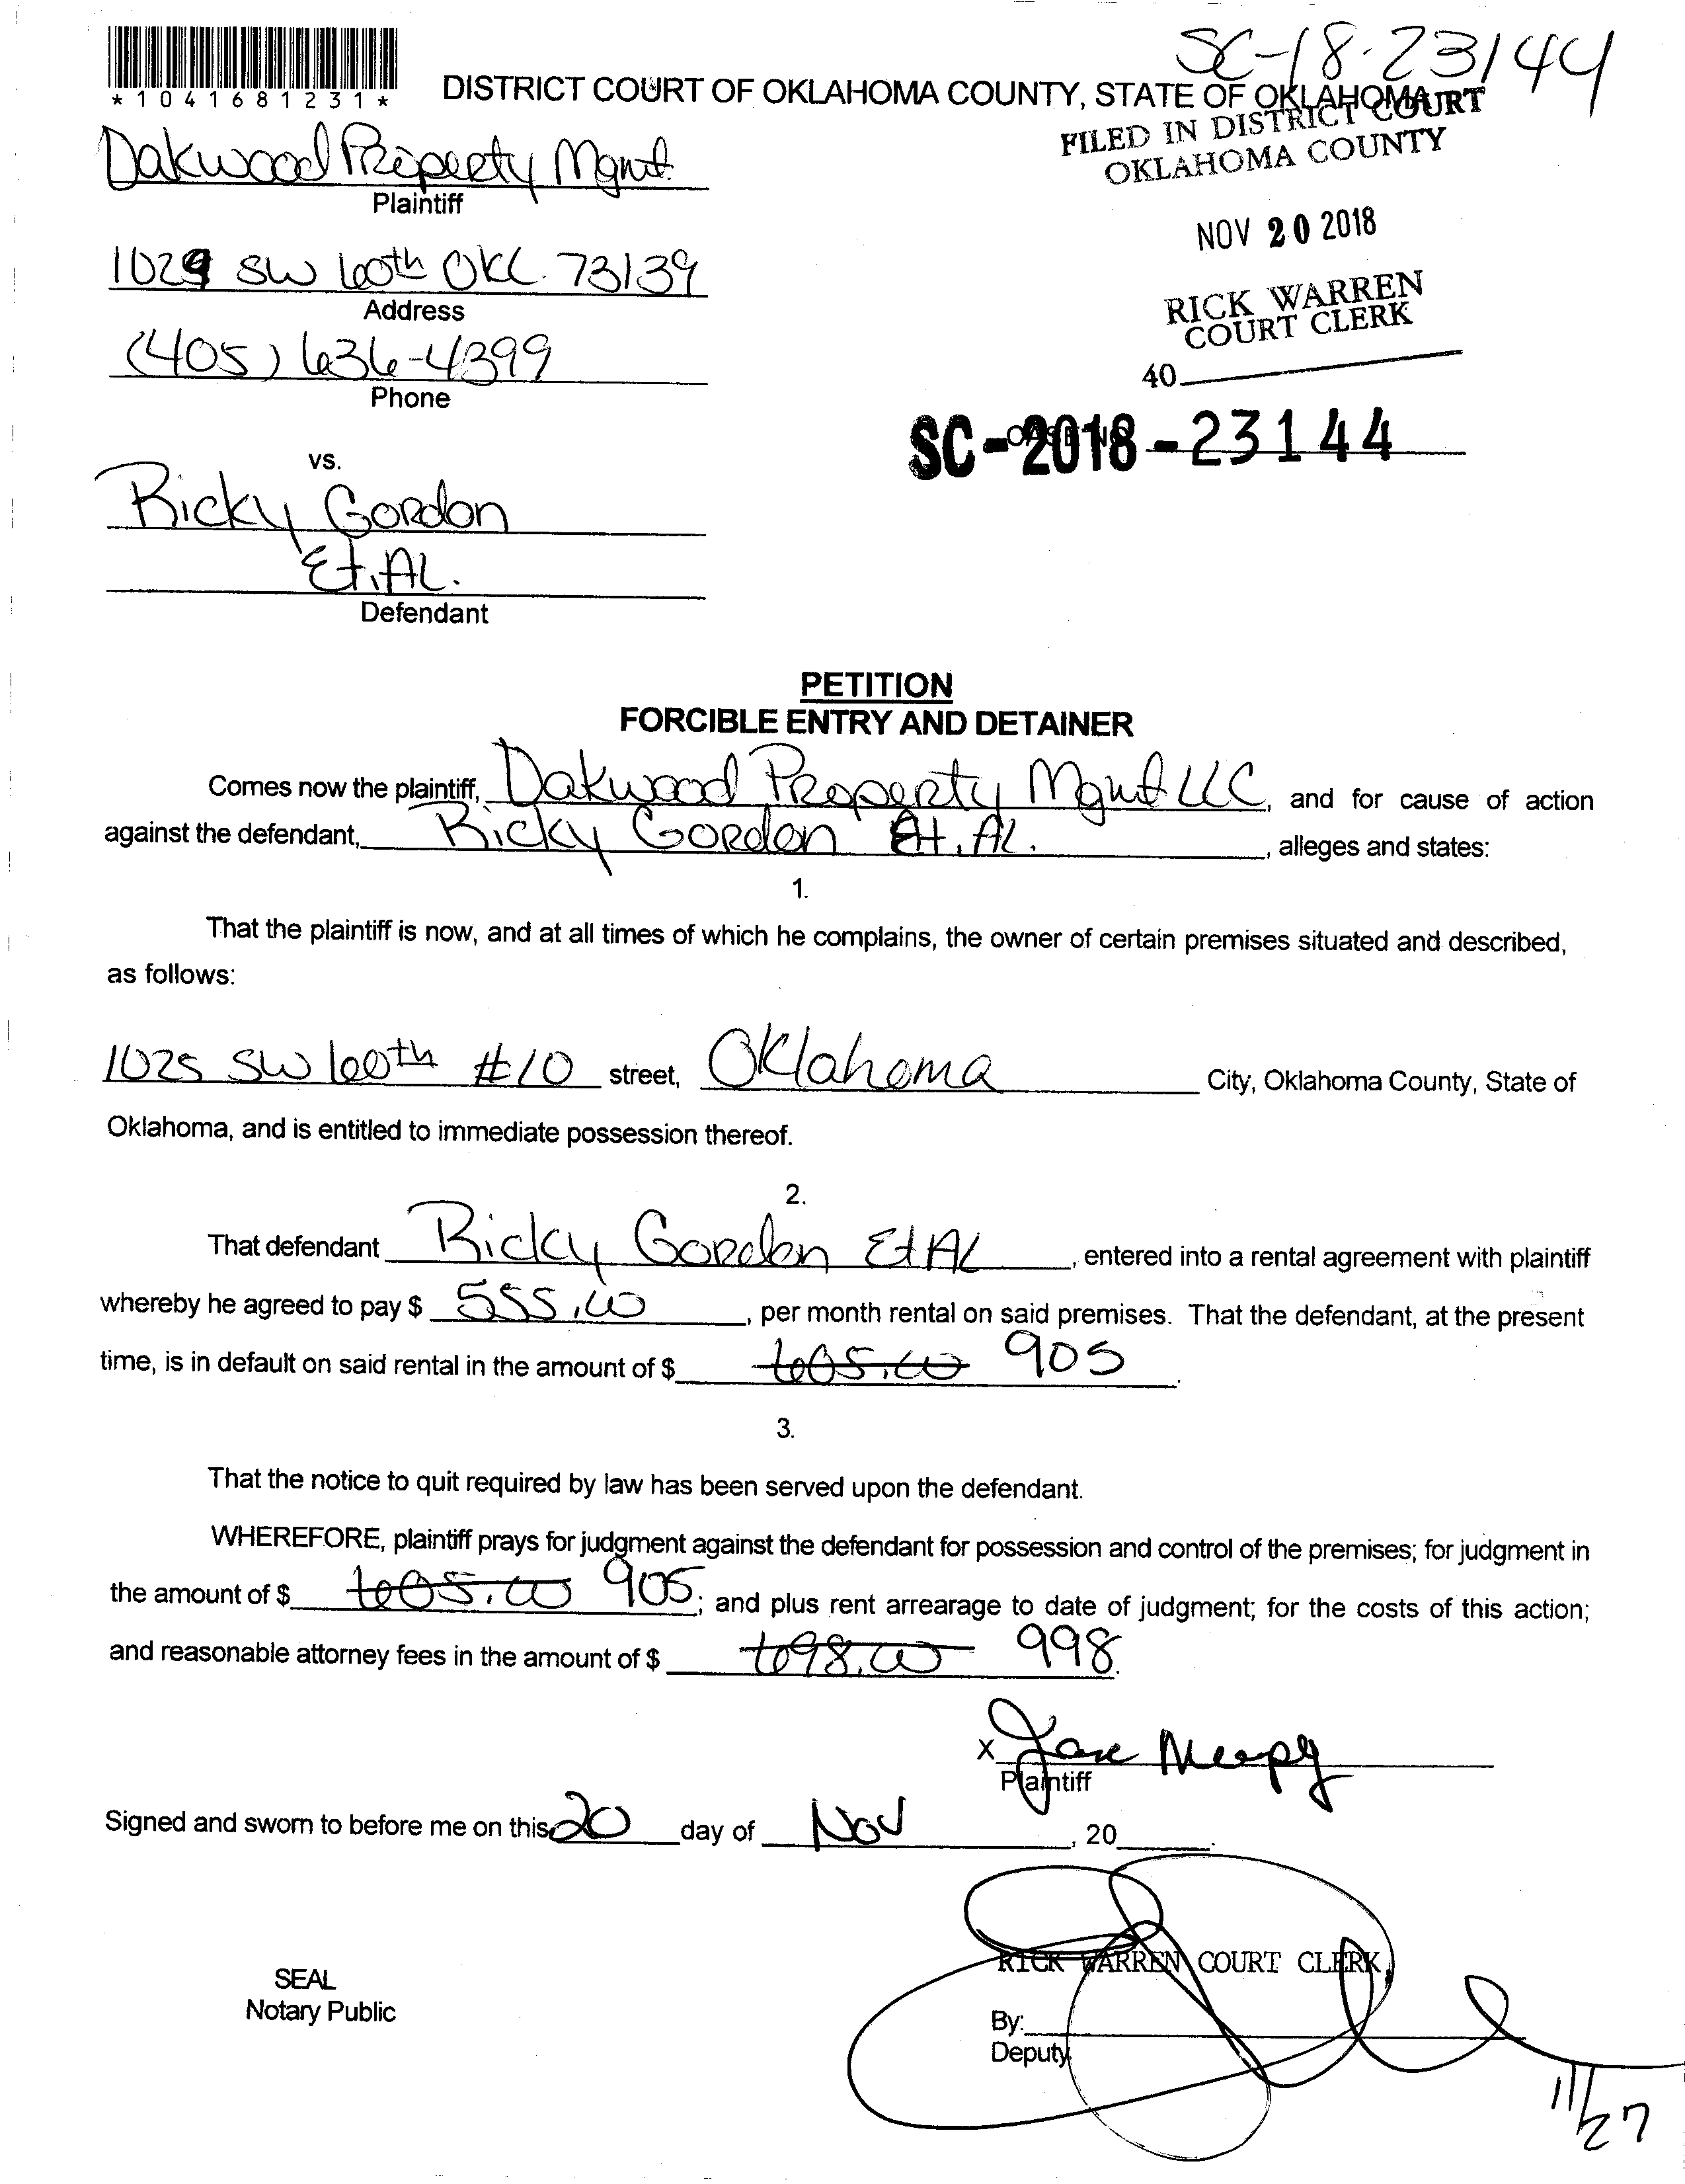 SC-18-23144
*1041681231*
DISTRICT COURT OF OKLAHOMA COUNTY, STATE OF OKLAHOMA
FILED IN DISTRICT COURT
OKLAHOMA COUNTY
Oakwood Property Mgmt.
Plaintiff
NOV 20 2018
1029 SW 60th OKC. 73139
Address
RICK WARREN
COURT CLERK
(405) 636-4399
Phone
40
SC-2018-23144
vs.
Ricky Gordon
Et. AL.
Defendant
PETITION
FORCIBLE ENTRY AND DETAINER
Comes now the plaintiff, Oakwood Property Mgmt LLC, and for cause of action
against the defendant, Ricky Gordon Et. Al., alleges and states:
1.
That the plaintiff is now, and at all times of which he complains, the owner of certain premises situated and described,
as follows:
1025 SW 60th #10 street, Oklahoma City, Oklahoma County, State of
Oklahoma, and is entitled to immediate possession thereof.
2.
That defendant Ricky Gordon Et AL, entered into a rental agreement with plaintiff
whereby he agreed to pay $ 555.00, per month rental on said premises. That the defendant, at the present
time, is in default on said rental in the amount of $ 605.00 905.
3.
That the notice to quit required by law has been served upon the defendant.
WHEREFORE, plaintiff prays for judgment against the defendant for possession and control of the premises; for judgment in
the amount of $ 605.00 905; and plus rent arrearage to date of judgment; for the costs of this action;
and reasonable attorney fees in the amount of $ 698.00 998.
X
Plaintiff
Signed and sworn to before me on this 20 day of Nov, 20.
RICK WARREN COURT CLERK
SEAL
Notary Public
By:
Deputy
11/27